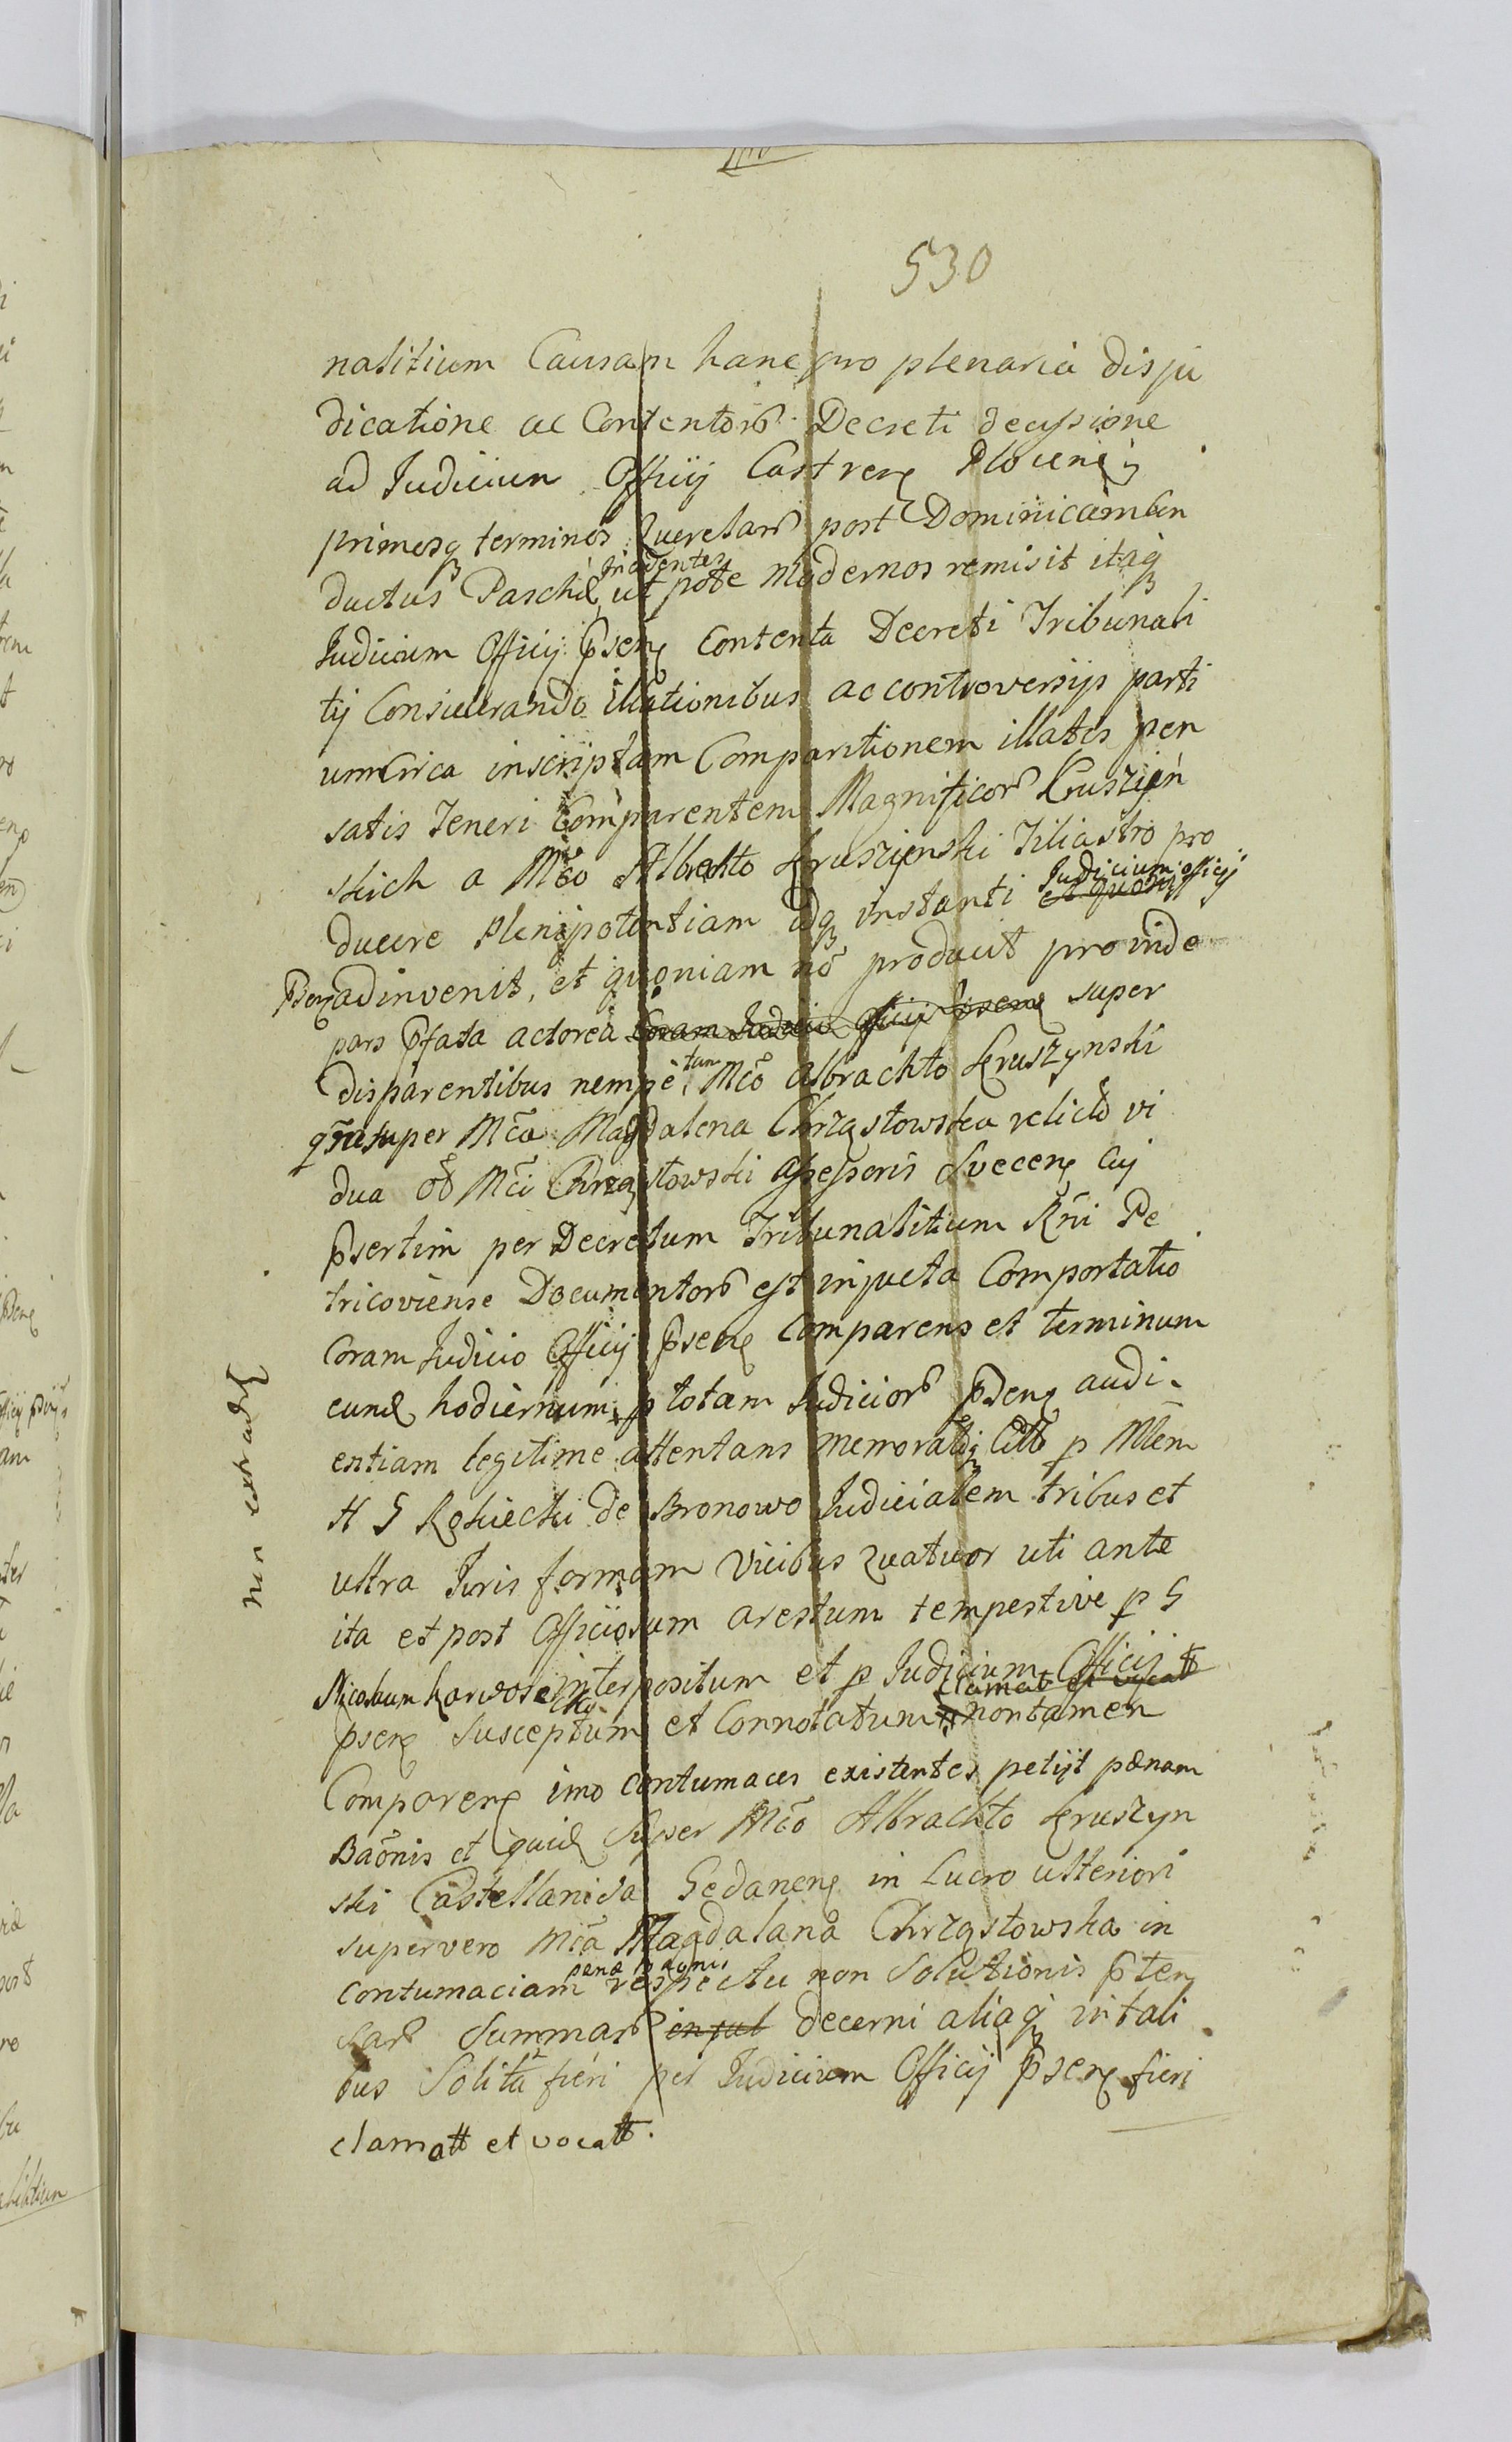 530
nalitium Causam hanc pro plenaria disju
dicatione ac Contentorũ Decreti decissione
ad Judicium Officij Castren Plocen
primosq terminos Querelarũ post Dominicam Con
incidentes
ductus Paschæ ut pote modernos remisit itaq
Judicium Officij Psens Contenta Decreti Tribunali
tij Considerando illationibus ac controversijs parti
um circa inscriptam Comparitionem illatis pen
satis Teneri Comparentem Magnificorũ Kruszyń
skich a Mco Albrachto Kruszynski Filiastro pro
Judicium officij
ducere plenipotentiam idq instanti et quoniam
Psens adinvenit, et quoniam nõ producit proinde
pars Pfata actorea Coram Judicio Officij Psens super
disparentibus nempe tam Mco Albrachto Kruszynski
quam super Mca Magdalena Chrząstowska relicta vi
dua oĩ Mci Chrząstowski Assessoris Svecen Cuj
Psertim per Decretum Tribunalitium Rñi Pe
tricoviense Documentorũ est injucta Comportatio
Coram Judicio Officij Psens Comparens et terminum
eund hodiernum p totam Judiciorũ Psens audi
entiam legitime attentans memoratq Citt p Mlem
H G Rokicki de Bronowo Judicialem tribus et
ultra Juris formam Vicibus Quatuor uti ante
ita et post Officiosum arestum tempestive p G
Nicolaum Karwosiecki interpositum et p Judicium Officij
clamat et vocat
psens susceptum et Connotatum non tamen
Comparens imo contumaces existentes petijt pœnam
Bãonis et quid Super Mco Albrachto Kruszyn
ski Castellanida Gedanen in Lucro ulteriori
super vero Mca Magdalana Chrząstowska in
pœnæ Baonis
Contumaciam respectu non Solutionis pten
sarũ Summarũ in jud decerni aliaq in tali
bus Solita fieri per Judicium Officij Psens fieri
clamatt et vocatt.